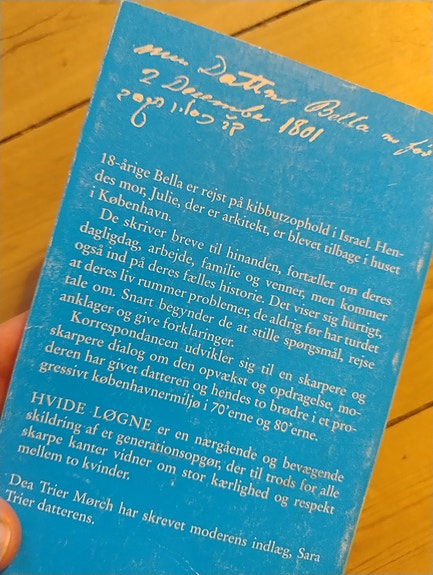 min Datter Bella er fød
2 December 1801
18-årige Bella er rejst på kibbutzophold i Israel. Hen-
des mor, Julie, der er arkitekt, er blevet tilbage i huset
i København.
De skriver breve til hinanden, fortæller om deres
dagligdag, arbejde, familie og venner, men kommer
også ind på deres fælles historie. Det viser sig hurtigt,
at deres liv rummer problemer, de aldrig før har turdet
tale om. Snart begynder de at stille spørgsmål, rejse
anklager og give forklaringer.
Korrespondancen udvikler sig til en skarpere og
skarpere dialog om den opvækst og opdragelse, mo-
deren har givet datteren og hendes to brødre i et pro-
gressivt københavnermiljø i 70'erne og 80'erne.
HVIDE LØGNE er en nærgående og bevægende
skildring af et generationsopgør, der til trods for alle
skarpe kanter vidner om stor kærlighed og respekt
mellem to kvinder.
Dea Trier Mørch har skrevet moderens indlæg, Sara
Trier datterens.